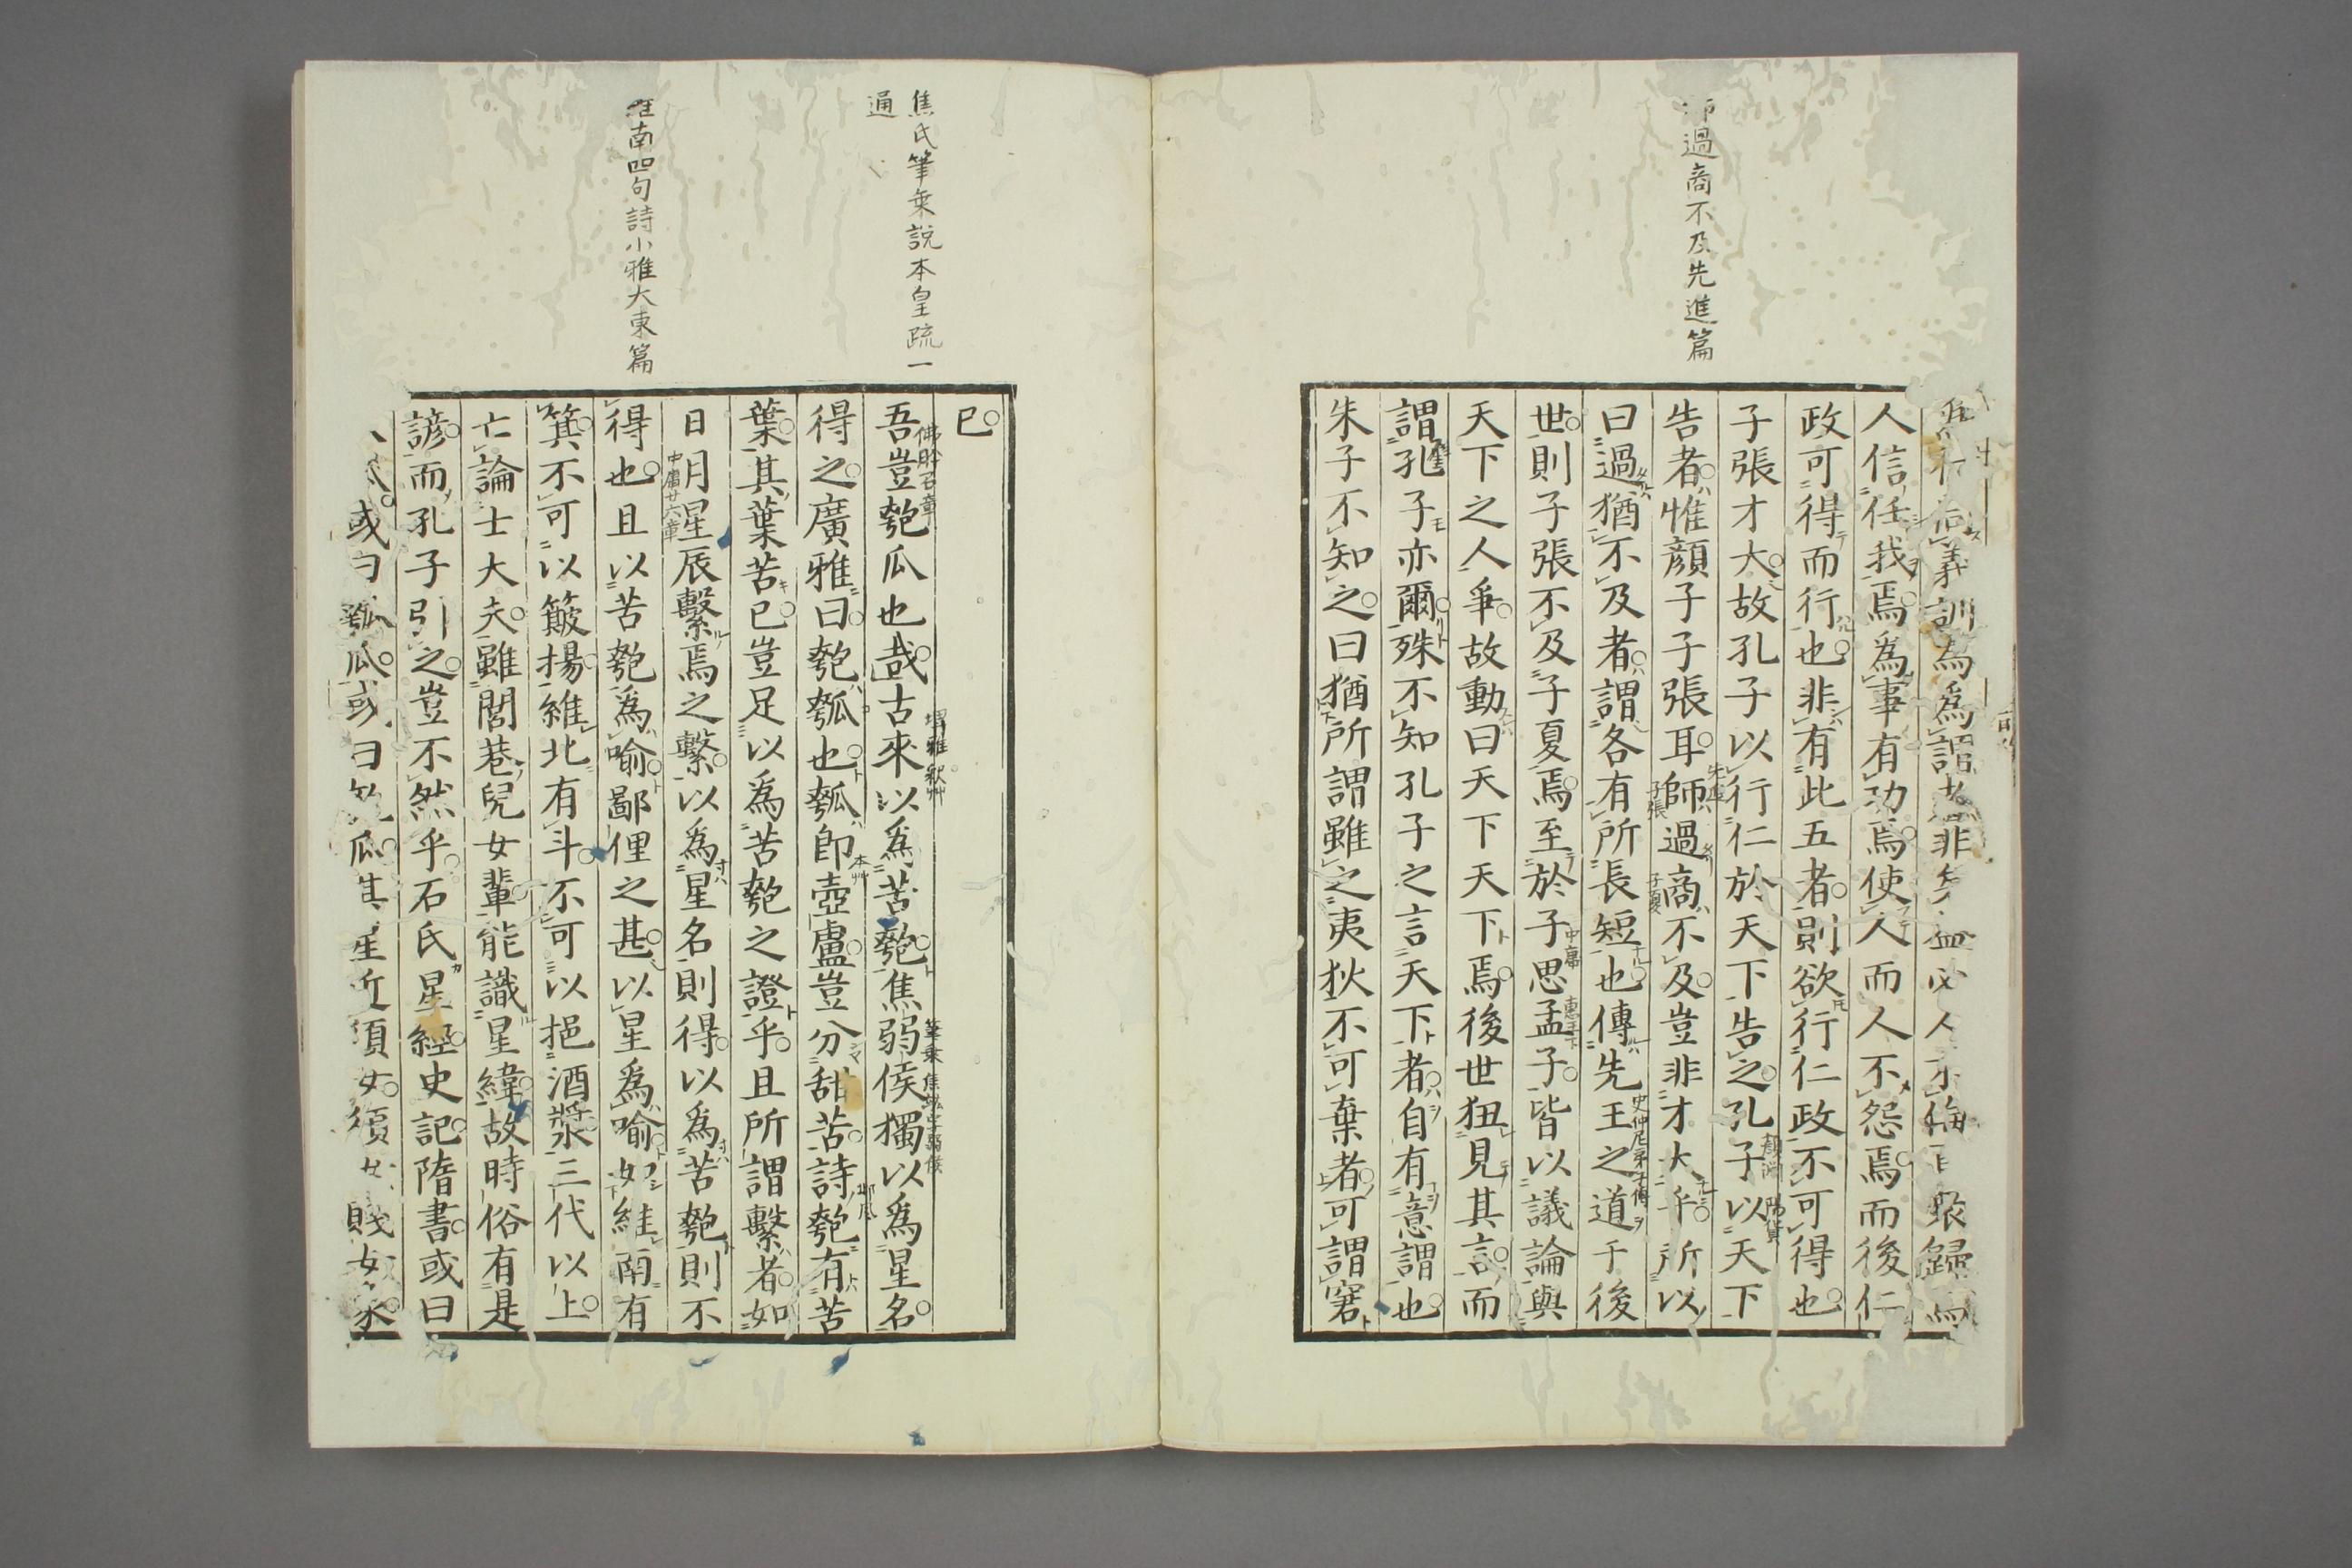 師過商不及先進篇
義訓為爲謂
人信任我焉爲事有功焉使人而人不怨焉而後仁
政可得而行也非有此五者則欲行仁政不可得也
子張才大故孔子以行仁於天下告之孔子以天下
顏淵
陽貨
告者惟顏子子張耳師過商不及豈非才大乎所以
先進
子張
子夏
曰過猶不及者謂各有所長短也傳先王之道于後
史仲尼弟子傳
世則子張不及子夏焉至於子思孟子皆以議論與
中庸
天下之人爭故動曰天下天下焉後世狃見其言而
謂孔子亦爾殊不知孔子之言天下者自有意謂也
朱子不知之曰猶所謂雖之夷狄不可棄者可謂窘
焦氏筆乗説本皇疏一
通
維南四句詩小雅大東篇
已
吾豈匏瓜也哉古來以爲苦匏焦弱侯獨以爲星名
佛肸召章
埤雅釈艸
筆乗焦竑字弱侯
得之廣雅曰匏瓠也瓠卽壺盧豈分甜苦詩匏有苦
本艸
邶風
葉其葉苦已豈足以爲苦匏之證乎且所謂繫者如
日月星辰繫焉之繫以爲星名則得以爲苦匏則不
中庸廿六章
得也且以苦匏爲喻鄙俚之甚以星爲喻如維南有
箕不可以簸揚維北有斗不可以挹酒漿三代以上
亡論士大夫雖閭巷兒女輩能識星緯故時俗有是
諺而孔子引之豈不然乎石氏星經史記隋書或曰
或曰瓠瓜或曰匏瓜其星近須女須女賤女